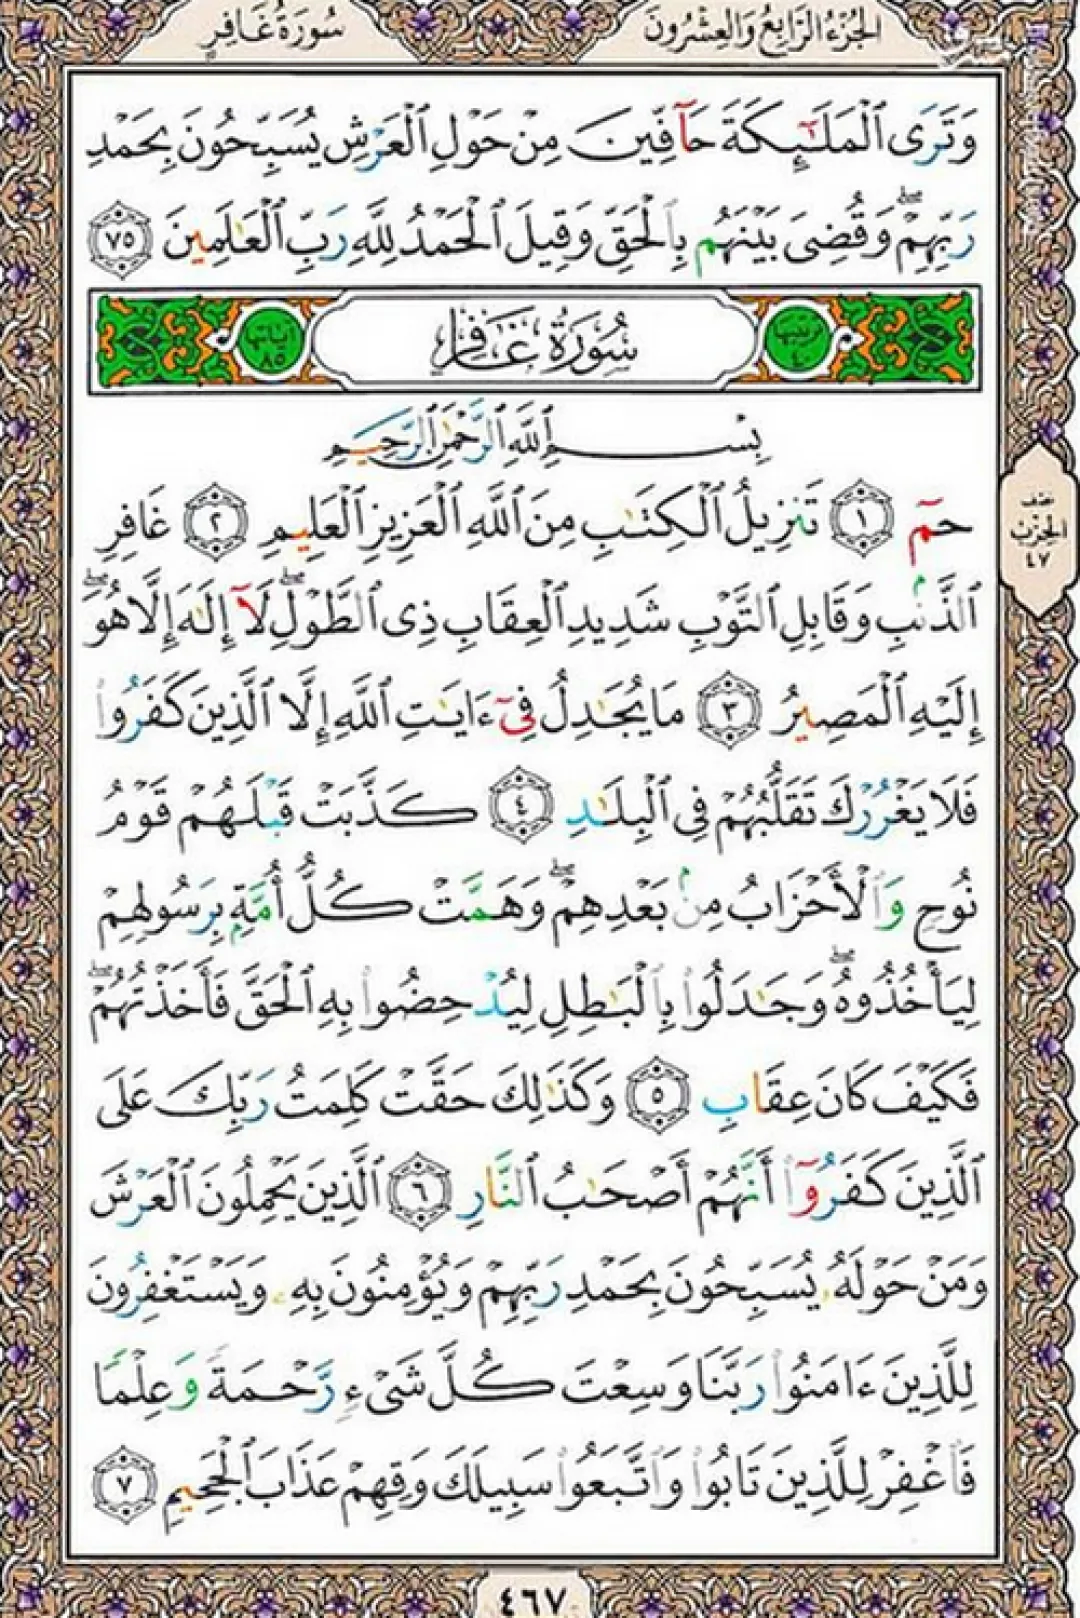 الجزء الرابع والعشرون
سورة غافر
وَتَرَى ٱلْمَلَـٰٓئِكَةَ حَآفِّينَ مِنْ حَوْلِ ٱلْعَرْشِ يُسَبِّحُونَ بِحَمْدِ
رَبِّهِمْ ۖ وَقُضِىَ بَيْنَهُم بِٱلْحَقِّ وَقِيلَ ٱلْحَمْدُ لِلَّهِ رَبِّ ٱلْعَـٰلَمِينَ ٧٥
ترتيبها ٤٠
سُورَةُ غَافِرٍ
آياتها ٨٥
بِسْمِ ٱللَّهِ ٱلرَّحْمَـٰنِ ٱلرَّحِيمِ
حمٓ ١ تَنزِيلُ ٱلْكِتَـٰبِ مِنَ ٱللَّهِ ٱلْعَزِيزِ ٱلْعَلِيمِ ٢ غَافِرِ
ٱلذَّنۢبِ وَقَابِلِ ٱلتَّوْبِ شَدِيدِ ٱلْعِقَابِ ذِى ٱلطَّوْلِ ۖ لَآ إِلَـٰهَ إِلَّا هُوَ ۖ
إِلَيْهِ ٱلْمَصِيرُ ٣ مَا يُجَـٰدِلُ فِىٓ ءَايَـٰتِ ٱللَّهِ إِلَّا ٱلَّذِينَ كَفَرُوا۟
فَلَا يَغْرُرْكَ تَقَلُّبُهُمْ فِى ٱلْبِلَـٰدِ ٤ كَذَّبَتْ قَبْلَهُمْ قَوْمُ
نُوحٍ وَٱلْأَحْزَابُ مِنۢ بَعْدِهِمْ ۖ وَهَمَّتْ كُلُّ أُمَّةٍۭ بِرَسُولِهِمْ
لِيَأْخُذُوهُ ۖ وَجَـٰدَلُوا۟ بِٱلْبَـٰطِلِ لِيُدْحِضُوا۟ بِهِ ٱلْحَقَّ فَأَخَذْتُهُمْ ۖ
فَكَيْفَ كَانَ عِقَابِ ٥ وَكَذَٰلِكَ حَقَّتْ كَلِمَتُ رَبِّكَ عَلَى
ٱلَّذِينَ كَفَرُوٓا۟ أَنَّهُمْ أَصْحَـٰبُ ٱلنَّارِ ٦ ٱلَّذِينَ يَحْمِلُونَ ٱلْعَرْشَ
وَمَنْ حَوْلَهُۥ يُسَبِّحُونَ بِحَمْدِ رَبِّهِمْ وَيُؤْمِنُونَ بِهِۦ وَيَسْتَغْفِرُونَ
لِلَّذِينَ ءَامَنُوا۟ رَبَّنَا وَسِعْتَ كُلَّ شَىْءٍ رَّحْمَةً وَعِلْمًا
فَٱغْفِرْ لِلَّذِينَ تَابُوا۟ وَٱتَّبَعُوا۟ سَبِيلَكَ وَقِهِمْ عَذَابَ ٱلْجَحِيمِ ٧
نصف
الحزب
٤٧
٤٦٧